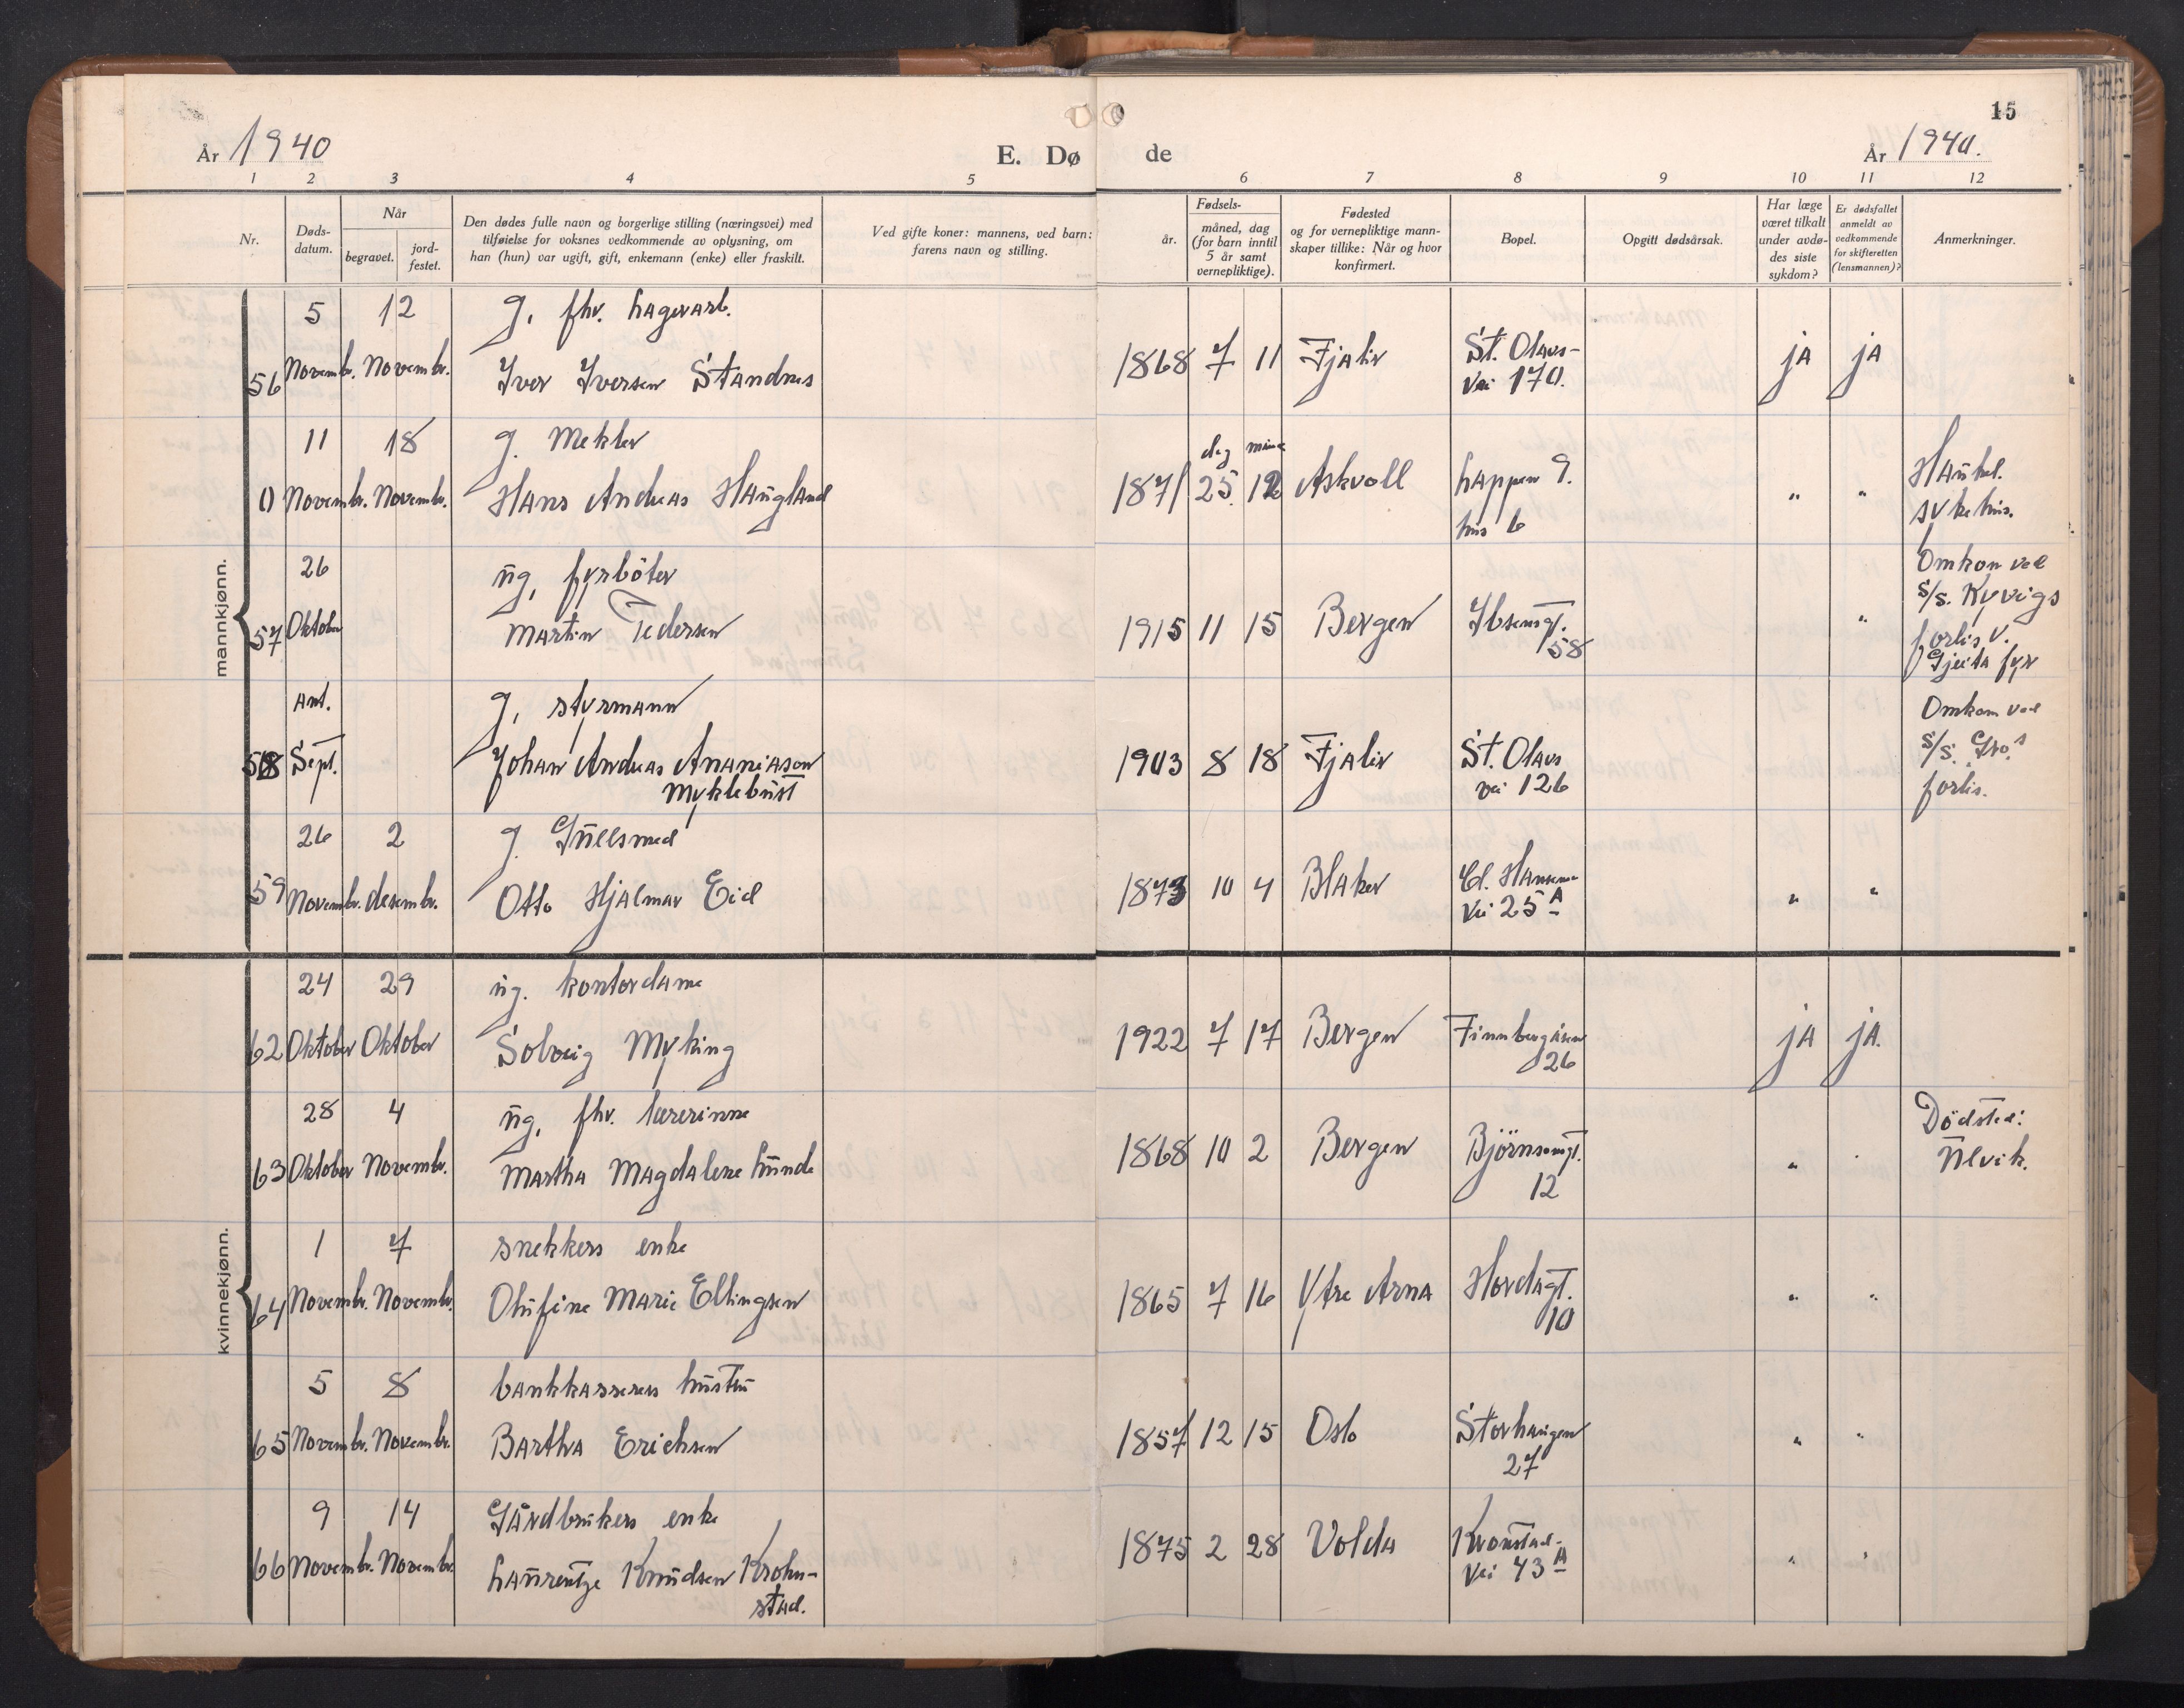 15
År 1940
E. Dø
de
År 1940.
1 2 3 4 5
6 7 8 9 10 11 12
Nr.
Døds-
datum.
Når
begravet.
jord-
festet.
Den dødes fulle navn og borgerlige stilling (næringsvei) med
tilføielse for voksnes vedkommende av oplysning, om
han (hun) var ugift, gift, enkemann (enke) eller fraskilt.
Ved gifte koner: mannens, ved barn:
farens navn og stilling.
Fødsels-
år.
måned, dag
(for barn inntil
5 år samt
vernepliktige).
Fødested
og for vernepliktige mann-
skaper tillike: Når og hvor
konfirmert.
Bopel.
Opgitt dødsårsak.
Har læge
været tilkalt
under avdø-
des siste
sykdom?
Er dødsfallet
anmeldt av
vedkommende
for skifteretten
(lensmannen)?
Anmerkninger.
mannkjønn.
5 12 g, fhv. hagearb.
56 Novembr. Novembr. Iver Iversen Standnes
1868 7 11 Fjaler St. Olavs-
vei 170. ja ja
11 18 g. Mekler
0 Novembr. Novembr. Hans Andreas Haugland
dag mån
1871 25 12 Askvoll Lappen 9.
hus 6 " "
Haukel.
sykehus.
26 ug, fyrbøter
57 Oktober Martin Pedersen
1915 11 15 Bergen Ibsensgt.
58 "
Omkom ved
s/s. Kyvigs
forlis v.
Gjeita fyr
Ant. g, styrmann
58 Sept. " Johan Andreas Ananiason
Myklebust
1903 8 18 Fjaler St. Olavs
vei 126
Omkom ved
s/s. Gro's
forlis.
26 2 g. Gullsmed
59 Novembr. desembr. Otto Hjalmar Eid
1873 10 4 Blaker Cl. Hansens
Vei 25 A " "
kvinnekjønn.
24 29 ug. kontordame
62 Oktober Oktober Solveig Myking
1922 7 17 Bergen Finnbergåsen
26 ja ja.
28 4 ug, fhv. lærerinne
63 Oktober Novembr. Martha Magdalene Lunde
1868 10 2 Bergen Bjørnsonsgt.
12 " "
Dødsted:
Ulvik.
1 7 snekkers enke
64 Novembr. Novembr. Olufine Marie Ellingsen
1865 7 16 Ytre Arna Hordagt.
10 " "
5 8 bankkasserers hustru
65 Novembr. Novembr. Bartha Erichsen
1857 12 15 Oslo Storhaugen
27 " "
9 14 Gårdbrukers enke
66 Novembr. Novembr. Laurentze Knudsen Krohn-
stad.
1875 2 28 Volda Kronstad-
Vei 43 A " "